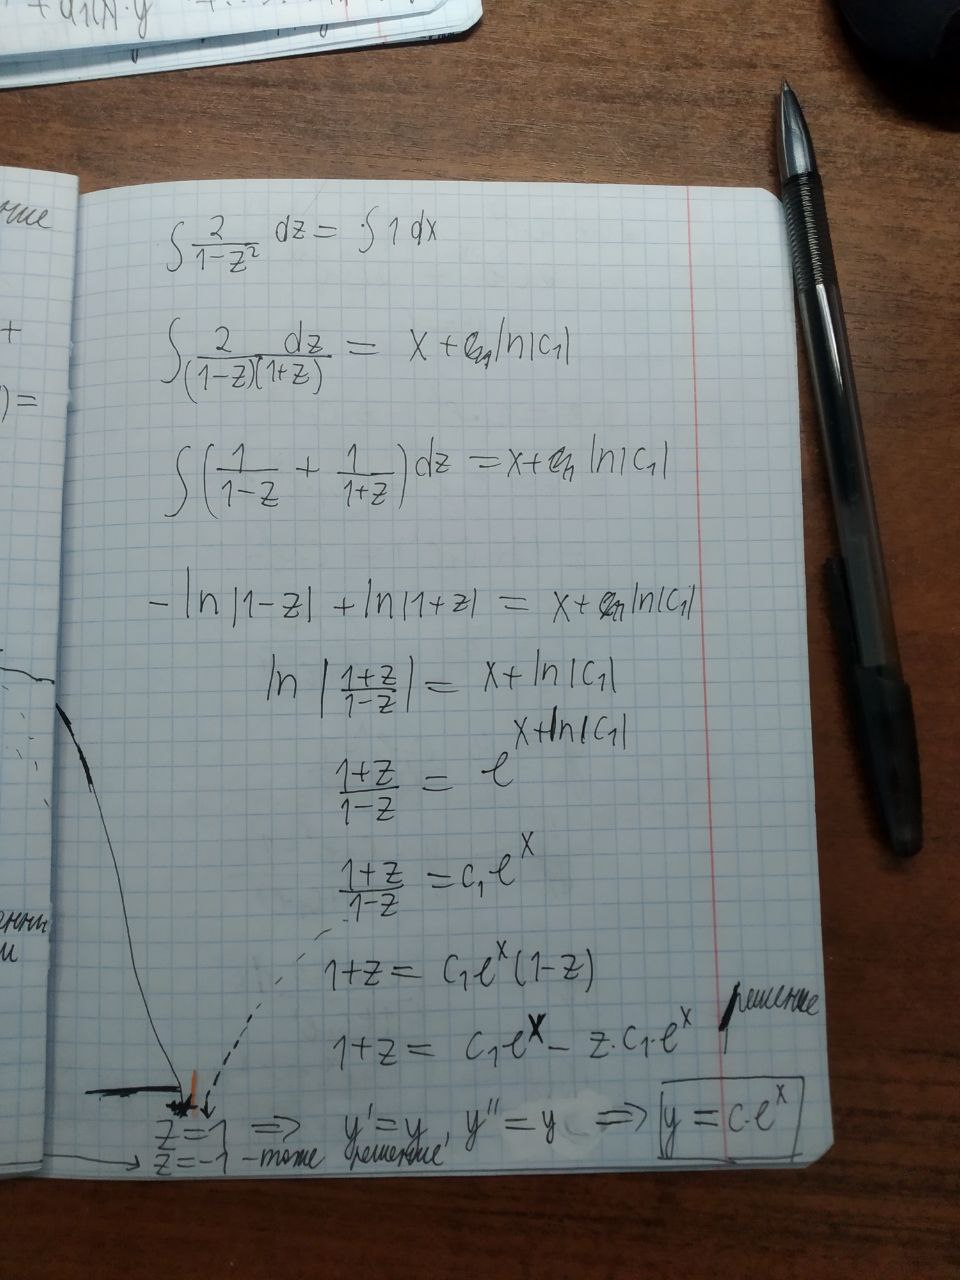 ние
∫ 2/(1-z²) dz = ∫ 1 dx
+
∫ 2 dz/((1-z)(1+z)) = x + ln|c₁|
) =
∫ (1/(1-z) + 1/(1+z)) dz = x + ln|c₁|
- ln|1-z| + ln|1+z| = x + ln|c₁|
ln |(1+z)/(1-z)| = x + ln|c₁|
(1+z)/(1-z) = e^(x+ln|c₁|)
(1+z)/(1-z) = c₁e^x
1+z = c₁e^x(1-z)
решение
1+z = c₁·e^x - z·c₁·e^x
z=1 ⇒ y'=y, y''=y ⇒ y = c·e^x
z=-1 - тоже решение